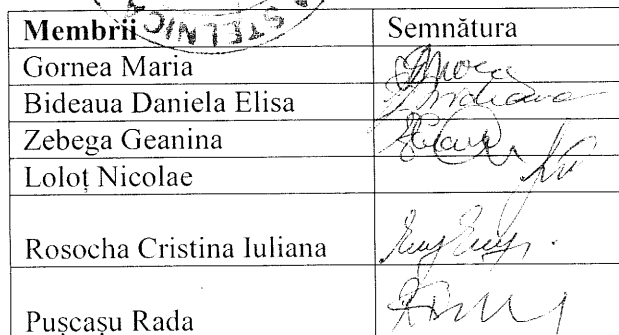 STELNICA
Membrii Semnătura
Gornea Maria
Bideaua Daniela Elisa
Zebega Geanina
Loloț Nicolae
Rosocha Cristina Iuliana
Pușcașu Rada